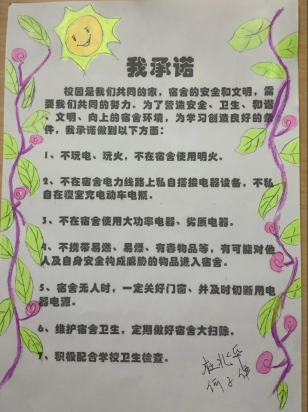 我承诺
校园是我们共同的家，宿舍的安全和文明，需
要我们共同的努力，为了营造安全、卫生、和谐
、文明、向上的宿舍环境，为学习创造良好的条
件，我承诺做到以下方面：
1、不玩电、玩火，不在宿舍使用明火。
2、不在宿舍电力线路上私自搭接电器设备，不私
自在寝室充电动车电瓶。
3、不在宿舍使用大功率电器、劣质电器。
4、不携带易燃、易爆、有毒物品等，有可能对他
人及自身安全构成威胁的物品进入宿舍。
5、宿舍无人时，一定关好门窗、并及时切断用电
器电源。
6、维护宿舍卫生，定期做好宿舍大扫除。
7、积极配合学校卫生检查。